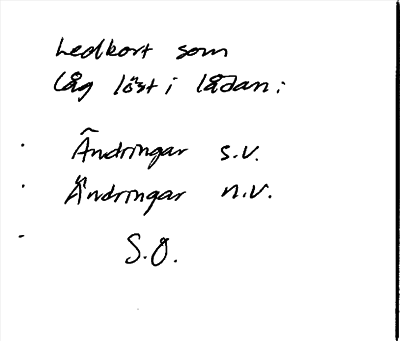 Ledkort som
låg löst i lådan:
Ändringar s.v.
Ändringar n.v.
S.Ö.